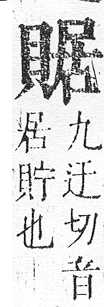 䝻
九迂切音
居貯也